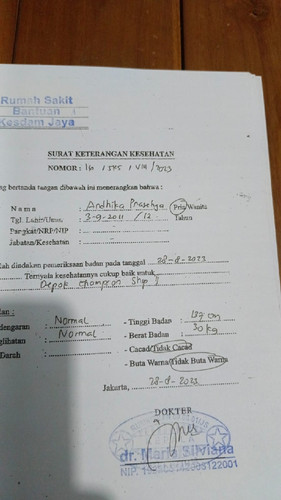 Rumah Sakit
Bantuan
Kesdam Jaya
SURAT KETERANGAN KESEHATAN
NOMOR : 16 / 545 / VIII / 2023
ng bertanda tangan dibawah ini menerangkan bahwa :
N a m a : Andhika Prasetya Pria/Wanita
Tgl. Lahir/Umur. : 3-9-2011 / 12 Tahun
Pangkat/NRP/NIP :
Jabatan/Kesehatan :
lah diadakan pemeriksaan badan pada tanggal 28-8-2023
Ternyata kesehatannya cukup baik untuk
Depok Champion Ship
dengaran : Normal - Tinggi Badan : cm
glihatan : Normal - Berat Badan : 30 kg
Darah : - Cacad/Tidak Cacad
- Buta Warna/Tidak Buta Warna
Jakarta, 28-8-2023
DOKTER
dr. Maria Silviana
NIP.